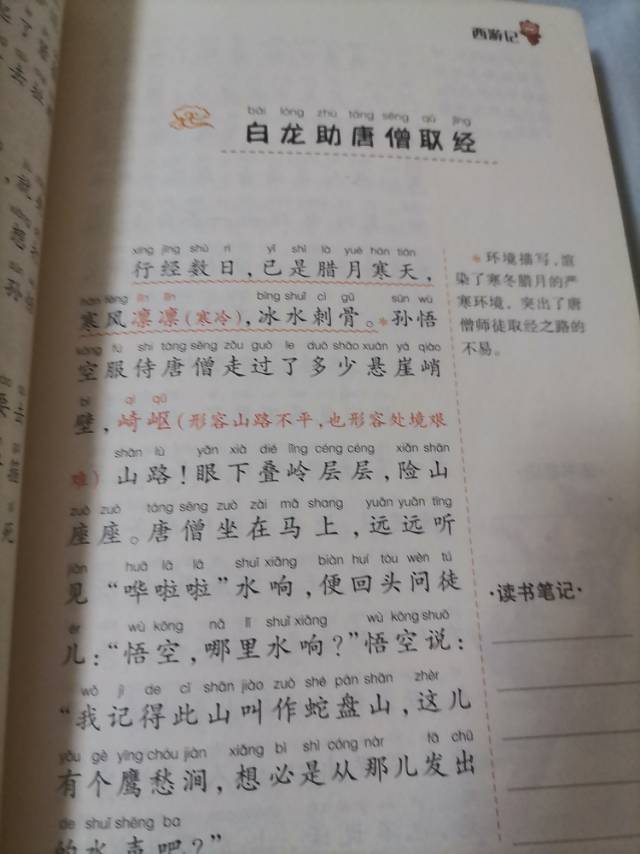 西游记
bái lóng zhù táng sēng qǔ jīng
白龙助唐僧取经
xíng jīng shù rì yǐ shì là yuè hán tiān
行经数日，已是腊月寒天，
hán fēng lǐn lǐn bīng shuǐ cì gǔ sūn wù
寒风凛凛（寒冷），冰水刺骨。*孙悟
kōng fú shì táng sēng zǒu guò le duō shǎo xuán yá qiào
空服侍唐僧走过了多少悬崖峭
bì qí qū
壁，崎岖（形容山路不平，也形容处境艰
shān lù yǎn xià dié lǐng céng céng xiǎn shān
难）山路！眼下叠岭层层，险山
zuò zuò táng sēng zuò zài mǎ shang yuǎn yuǎn tīng
座座。唐僧坐在马上，远远听
jiàn huā lā lā shuǐ xiǎng biàn huí tóu wèn tú
见“哗啦啦”水响，便回头问徒
ér wù kōng nǎ lǐ shuǐ xiǎng wù kōng shuō
儿：“悟空，哪里水响？”悟空说：
wǒ jì de cǐ shān jiào zuò shé pán shān zhèr
“我记得此山叫作蛇盘山，这儿
yǒu gè yīng chóu jiàn xiǎng bì shì cóng nàr fā chū
有个鹰愁涧，想必是从那儿发出
de shuǐ shēng ba
的水声吧？”
*环境描写，渲
染了寒冬腊月的严
寒环境，突出了唐
僧师徒取经之路的
不易。
·读书笔记·